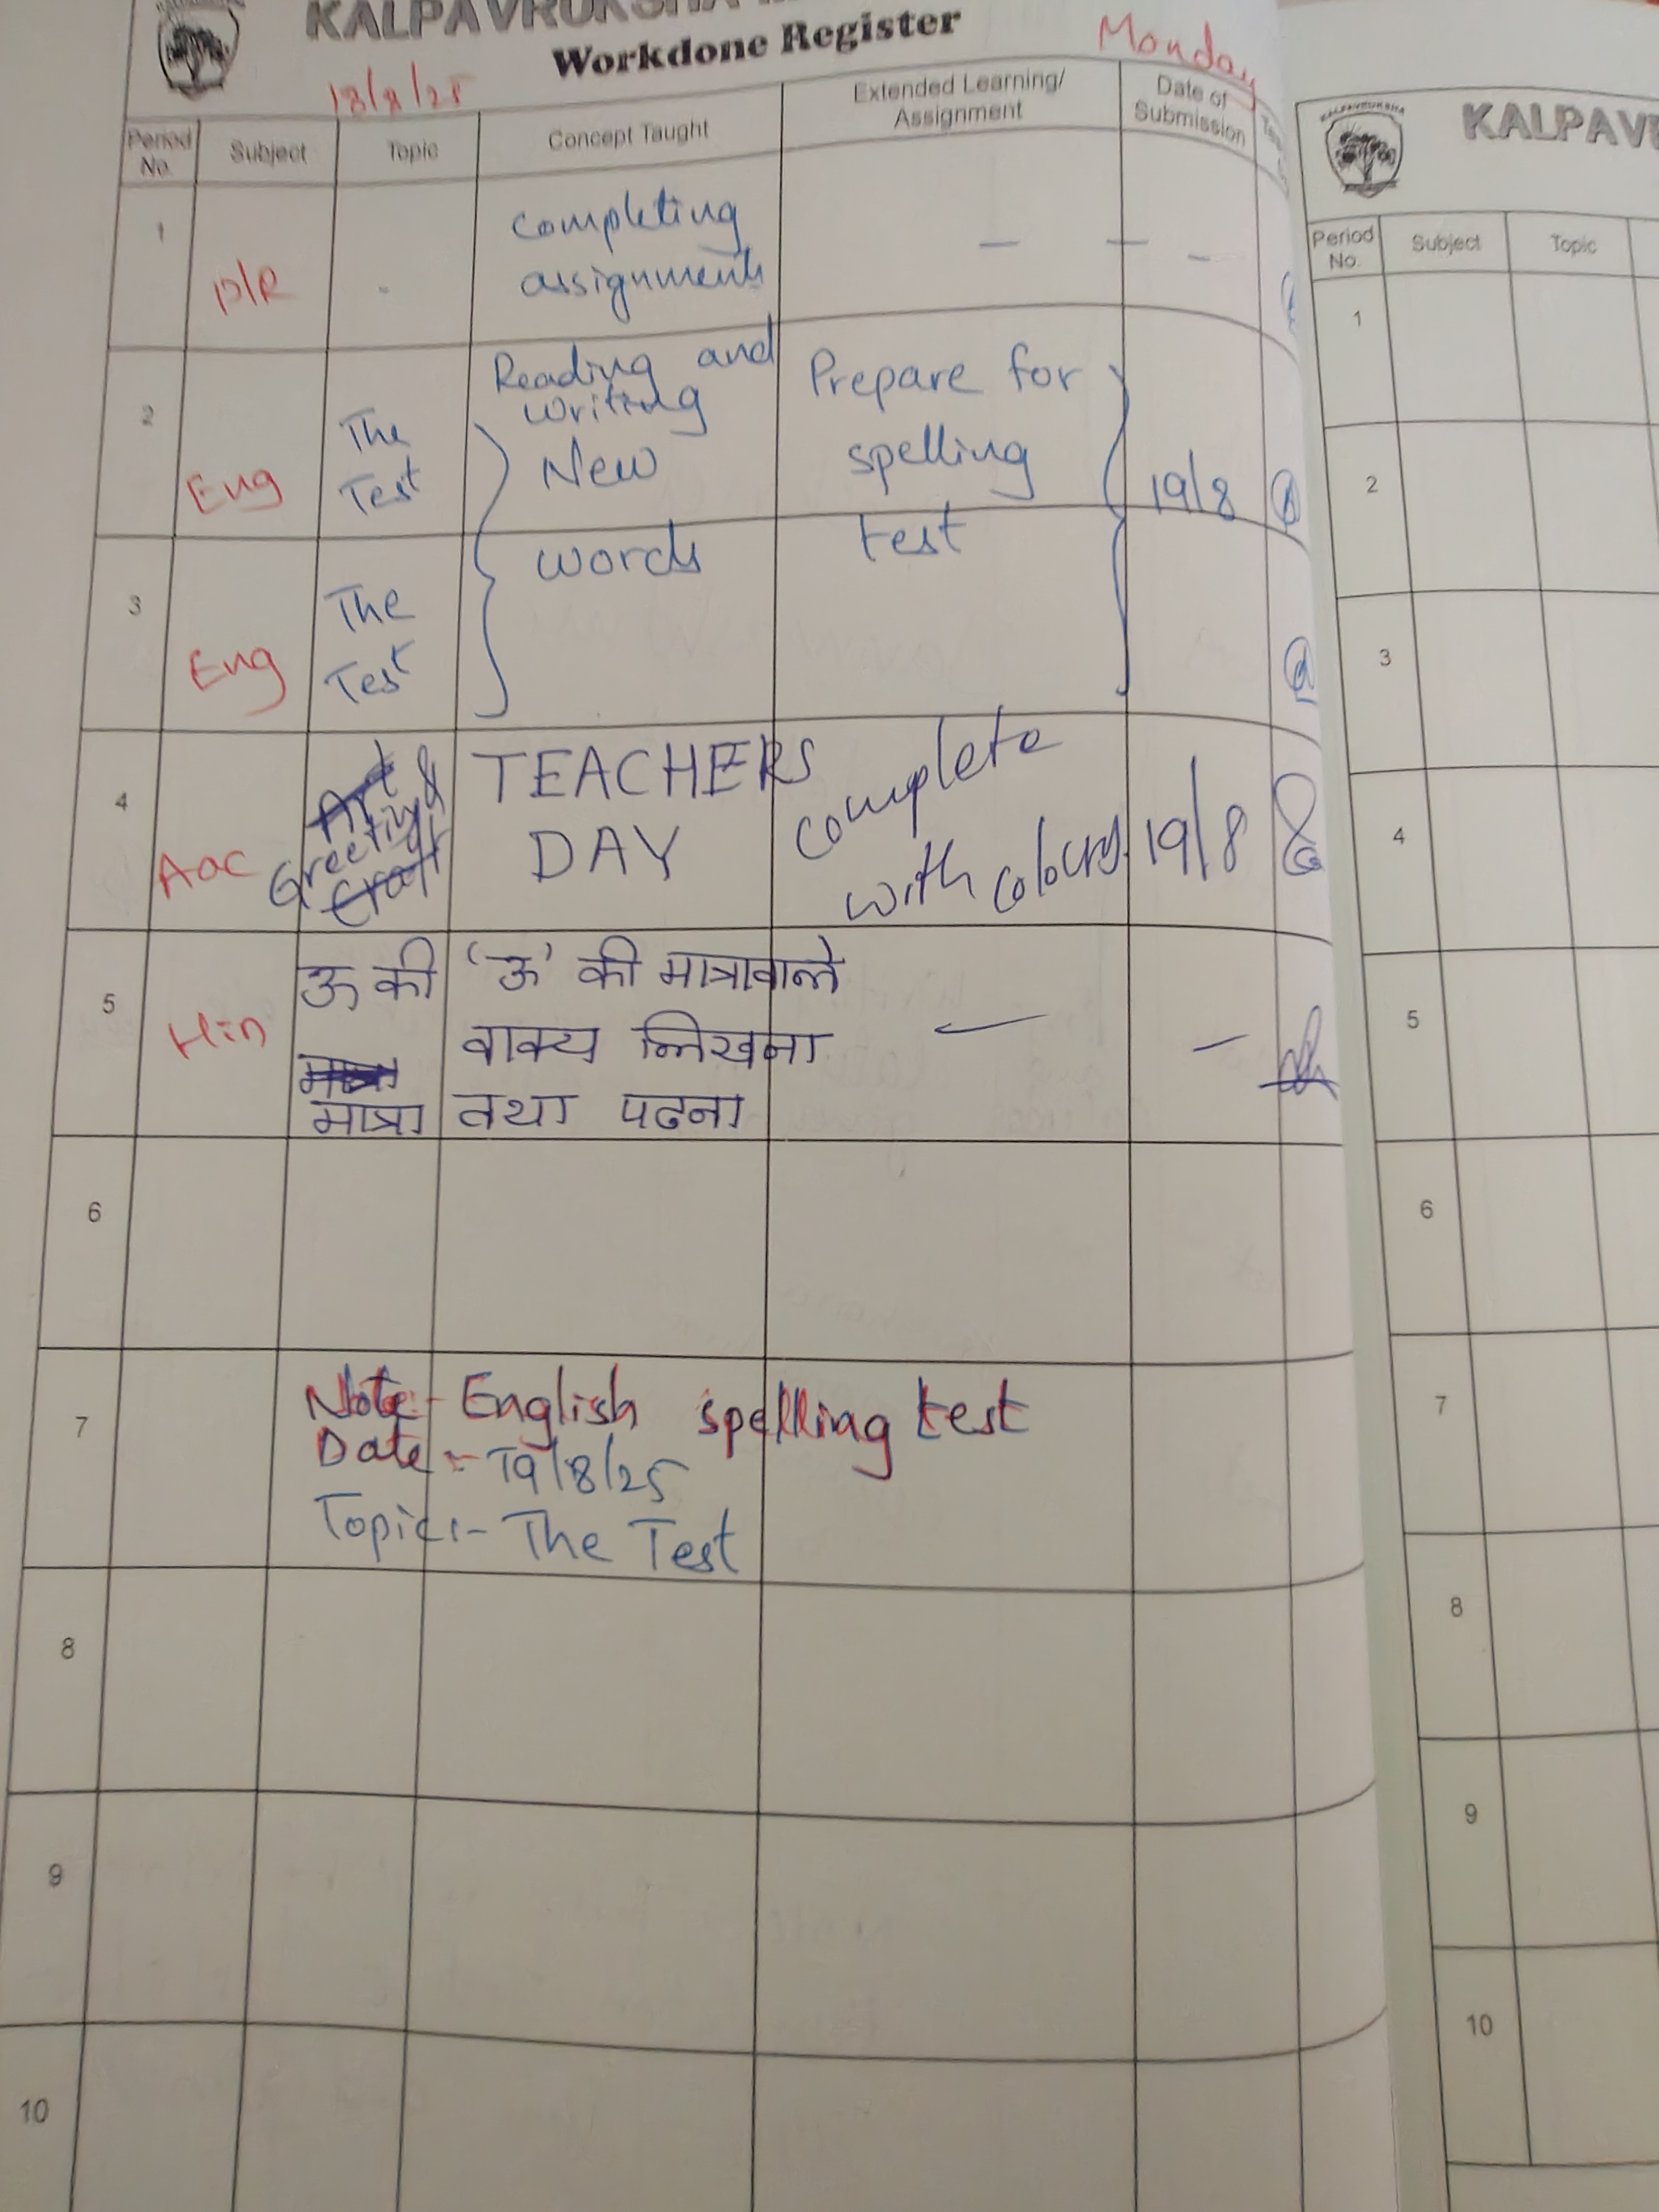 Workdone Register
Monday
18/8/25
Period No. Subject Topic Concept Taught Extended Learning/ Assignment Date of Submission
1 D/R - completing assignments — — -
2 Eng The Test Reading and writing New Prepare for spelling 19/8
3 Eng The Test words test
4 Aoc Greeting TEACHERS DAY complete with colours. 19/8
5 Hin ऊ की मात्रा 'ऊ' की मात्रावाले वाक्य लिखना तथा पढना — —
6
7
Note:- English spelling test
Date :- 19/8/25
Topic:- The Test
8
9
10
KALPAVRUKSHA
Period No. Subject Topic
1
2
3
4
5
6
7
8
9
10